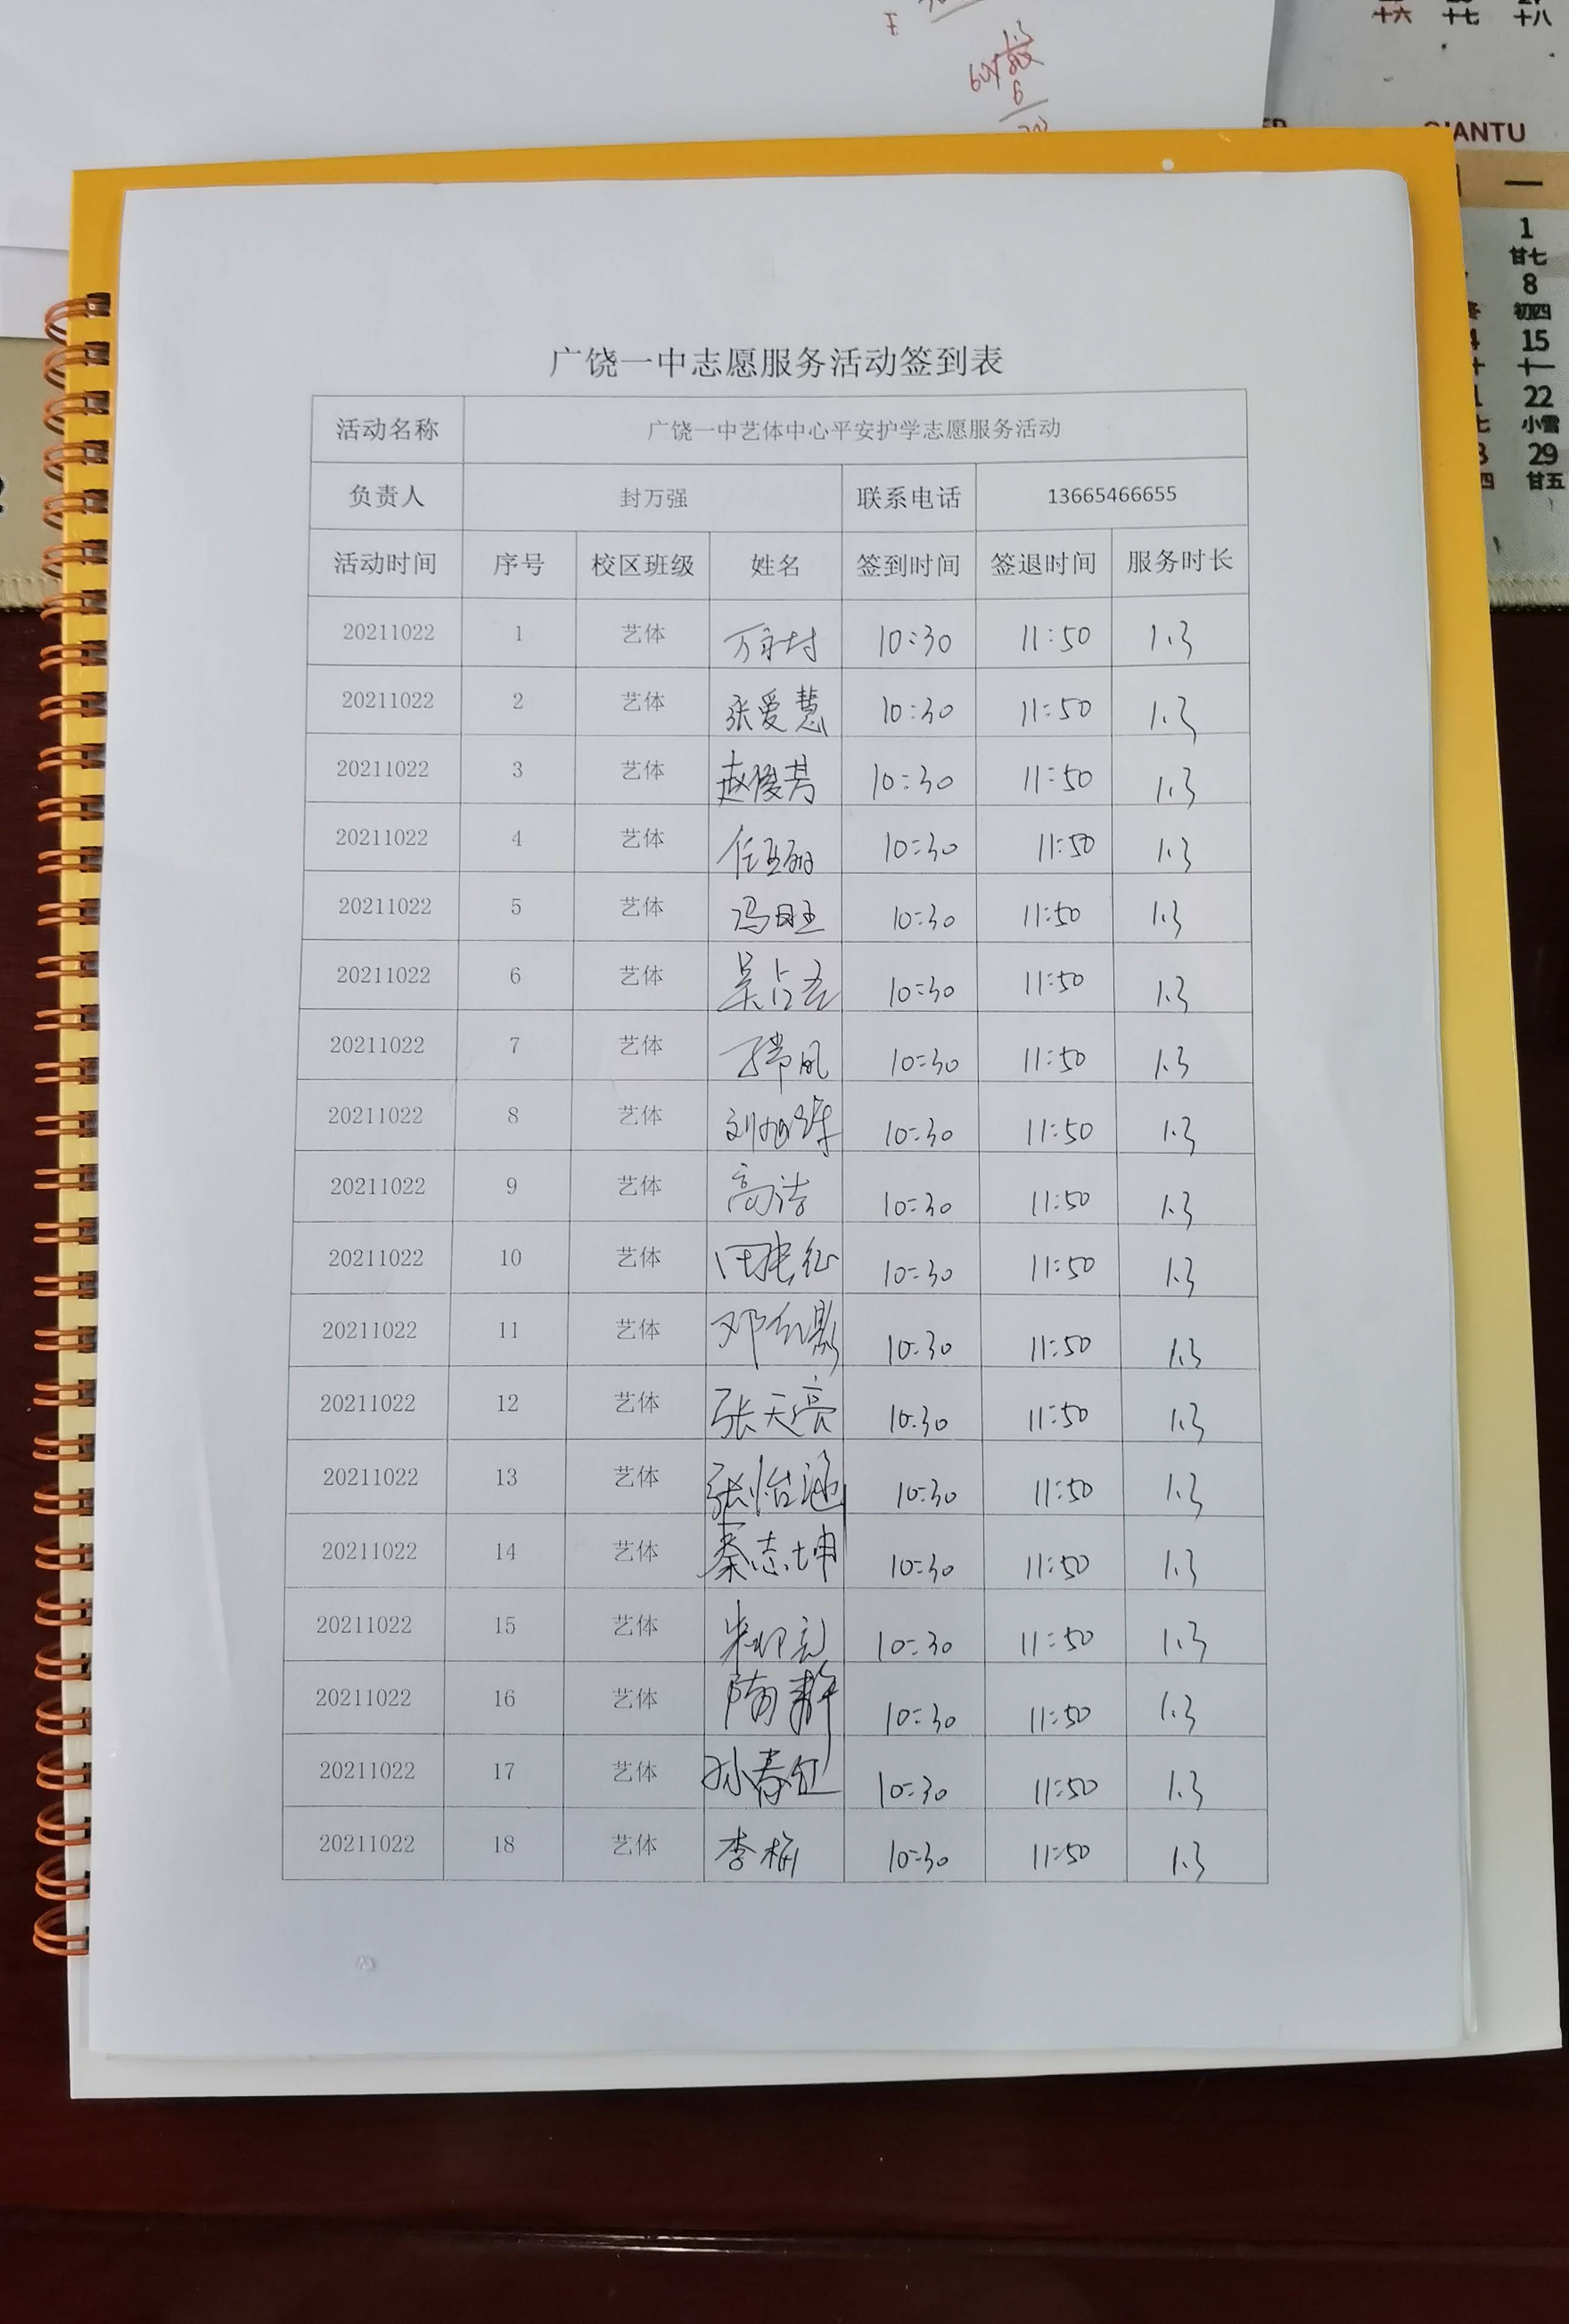 十六 十七 十八
QIANTU
一
1
廿七
8
初四
15
十一
22
小雪
29
廿五
广饶一中志愿服务活动签到表
活动名称 广饶一中艺体中心平安护学志愿服务活动
负责人 封万强 联系电话 13665466655
活动时间 序号 校区班级 姓名 签到时间 签退时间 服务时长
20211022 1 艺体 10:30 11:50 1.3
20211022 2 艺体 张爱慧 10:30 11:50 1.3
20211022 3 艺体 赵俊芳 10:30 11:50 1.3
20211022 4 艺体 10:30 11:50 1.3
20211022 5 艺体 10:30 11:50 1.3
20211022 6 艺体 10:30 11:50 1.3
20211022 7 艺体 10:30 11:50 1.3
20211022 8 艺体 10:30 11:50 1.3
20211022 9 艺体 高洁 10:30 11:50 1.3
20211022 10 艺体 10:30 11:50 1.3
20211022 11 艺体 10:30 11:50 1.3
20211022 12 艺体 张天亮 10:30 11:50 1.3
20211022 13 艺体 张怡涵 10:30 11:50 1.3
20211022 14 艺体 秦志坤 10:30 11:50 1.3
20211022 15 艺体 10:30 11:50 1.3
20211022 16 艺体 隋静 10:30 11:50 1.3
20211022 17 艺体 孙春红 10:30 11:50 1.3
20211022 18 艺体 李梅 10:30 11:50 1.3